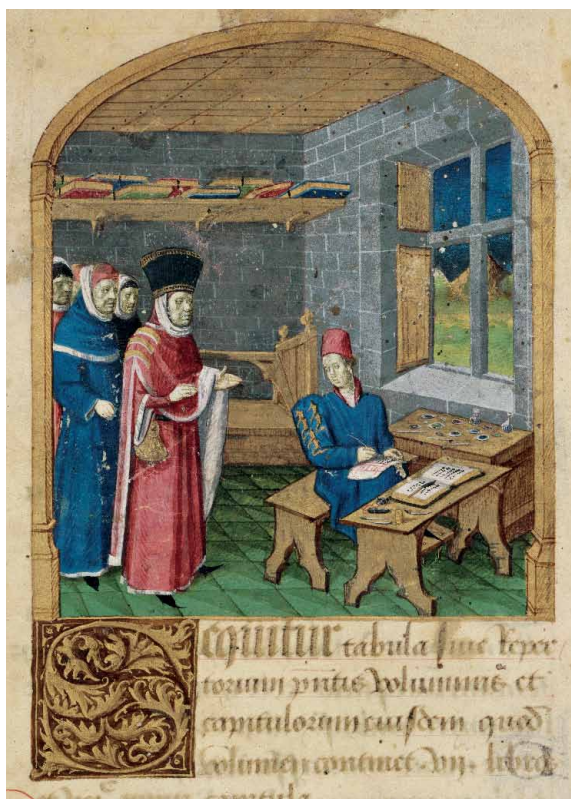 Sequitur tabula sive reper
torium pntis voluminis et
capitulorum eiusdem quod
volumen continet .vii. libros
capitula